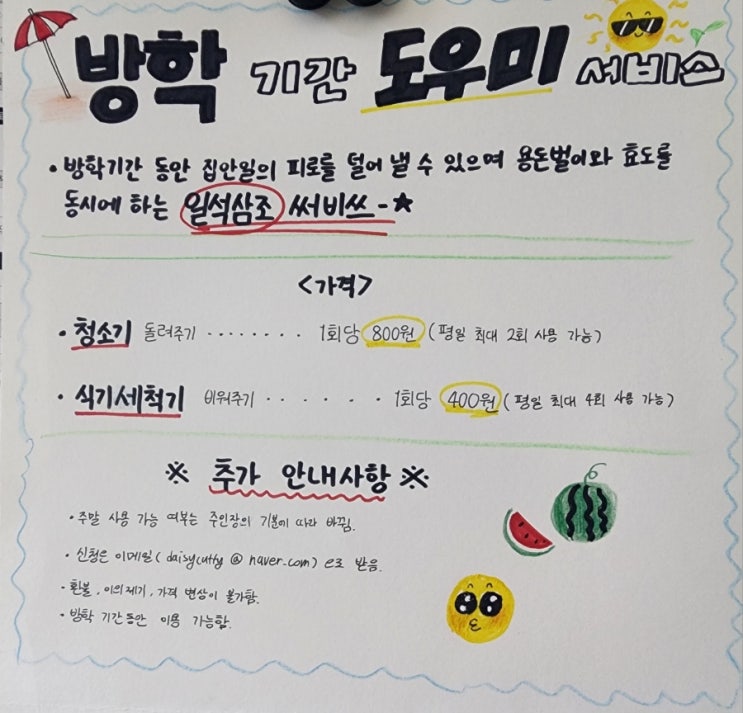 방학 기간 도우미 서비스
• 방학기간 동안 집안일의 피로를 덜어 낼 수 있으며 용돈벌이와 효도를
동시에 하는 일석삼조 써비쓰-★
<가격>
• 청소기 돌려주기 ········ 1회당 800원 (평일 최대 2회 사용 가능)
• 식기세척기 비워주기 ····· 1회당 400원 (평일 최대 4회 사용 가능)
※ 추가 안내사항 ※
• 주말 사용 가능 여부는 주인장의 기분에 따라 바뀜.
• 신청은 이메일(daisycutty @ naver.com)으로 받음.
• 환불, 이의제기, 가격 변상이 불가함.
• 방학 기간동안 이용 가능함.